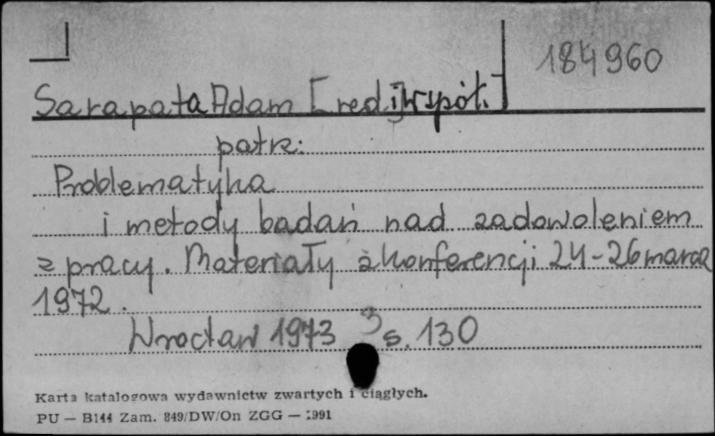 184960
Sarapata Adam [red.] [współ.]
patrz:
Problematyka
i metody badań nad zadowoleniem
z pracy. Materiały z konferencji 24-26 marca
1972.
Wrocław 1973 s. 130
Karta katalogowa wydawnictw zwartych i ciągłych.
PU — B144 Zam. 849/DW/On ZGG — 1991